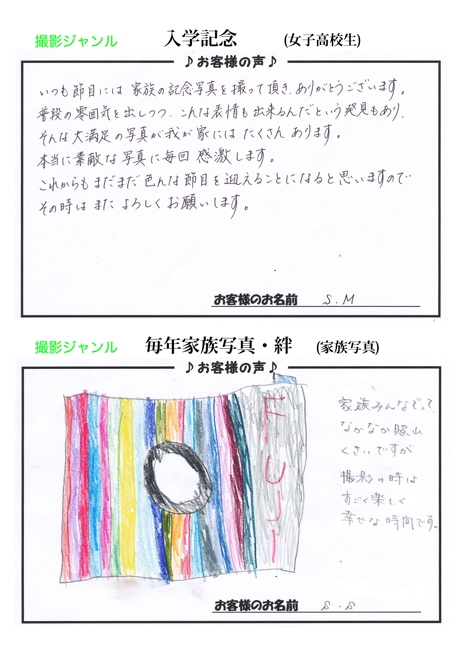 撮影ジャンル 入学記念 (女子高校生)
♪お客様の声♪
いつも節目には家族の記念写真を撮って頂き、ありがとうございます。
普段の雰囲気を出しつつ、こんな表情も出来るんだという発見もあり、
そんな大満足の写真が我が家にはたくさんあります。
本当に素敵な写真に毎回感激します。
これからもまだまだ色んな節目を迎えることになると思いますので
その時はまたよろしくお願いします。
お客様のお名前 S.M
撮影ジャンル 毎年家族写真・絆 (家族写真)
♪お客様の声♪
家族みんなでって、
なかなか照れ
くさいですが
撮影の時は
すごく楽しく
幸せな時間です。
お客様のお名前 S.S